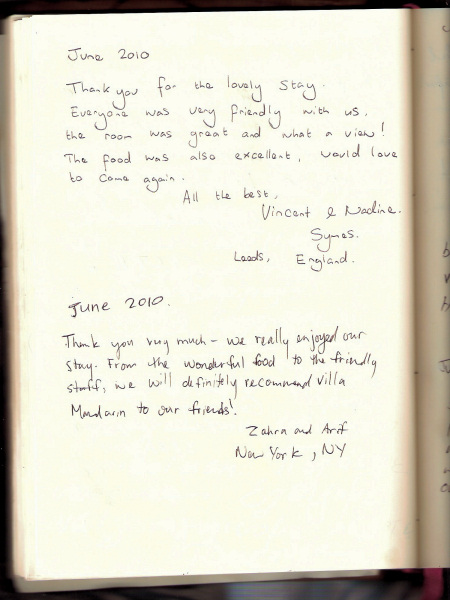 June 2010
Thank you for the lovely stay.
Everyone was very friendly with us,
the room was great and what a view!
The food was also excellent, would love
to come again.
All the best,
Vincent & Nadine.
Symes.
Leeds, England.
June 2010.
Thank you very much - we really enjoyed our
stay. From the wonderful food to the friendly
staff, we will definitely recommend Villa
Mandarin to our friends!
Zahra and Arif
New York, NY